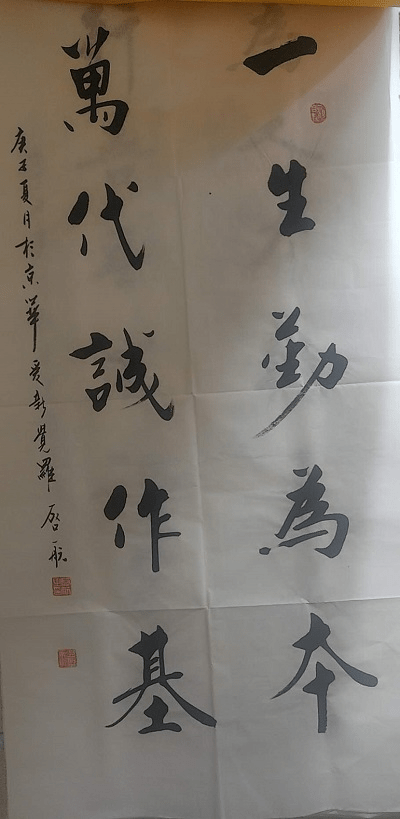 一生勤為本
萬代誠作基
庚子夏月於京華愛新覺羅啓航